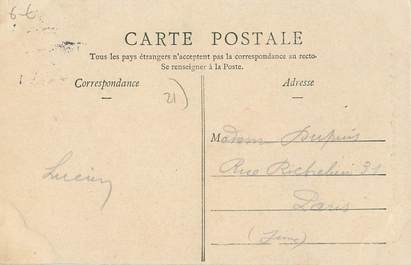 6-6
CARTE POSTALE
Tous les pays étrangers n'acceptent pas la correspondance au recto-
Se renseigner à la Poste.
Correspondance
Adresse
21)
Lucien
Madame Dupuis
Rue Richelieu 31
Paris